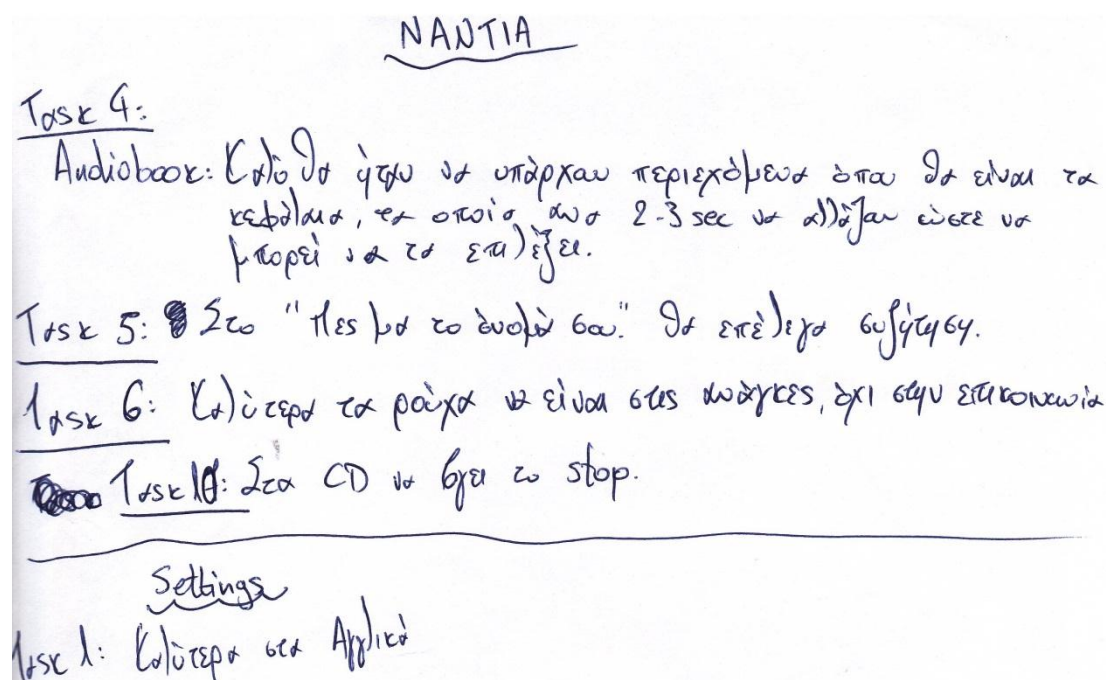 ΝΑΝΤΙΑ
Task 4:
Audiobook: Καλό θα ήταν να υπάρχουν περιεχόμενα όπου θα είναι τα
κεφάλαια, τα οποία ανα 2-3 sec να αλλάζουν ώστε να
μπορεί να τα επιλέξει.
Task 5: Στο "Πες μου το όνομά σου." θα επέλεγα συζήτηση.
Task 6: Καλύτερα τα ρούχα να είναι στις ανάγκες, όχι στην επικοινωνία
Task 10: Στα CD να βγει το stop.
Settings
Task 1: Καλύτερα στα Αγγλικά